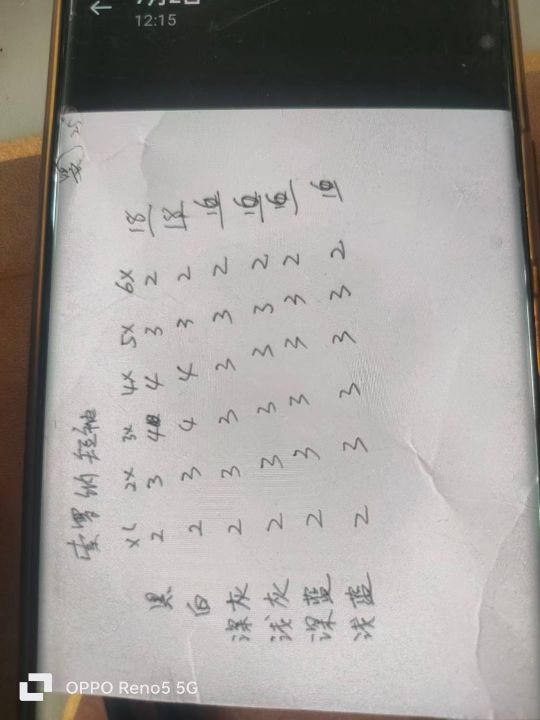 7月2日
12:15
索罗纳短袖
XL 2X 3X 4X 5X 6X
黑 2 3 4 4 3 2 18
白 2 3 4 4 3 2 18
深灰 2 3 3 3 3 2 16
浅灰 2 3 3 3 3 2 16
深蓝 2 3 3 3 3 2 16
浅蓝 2 3 3 3 3 2 16
OPPO Reno5 5G